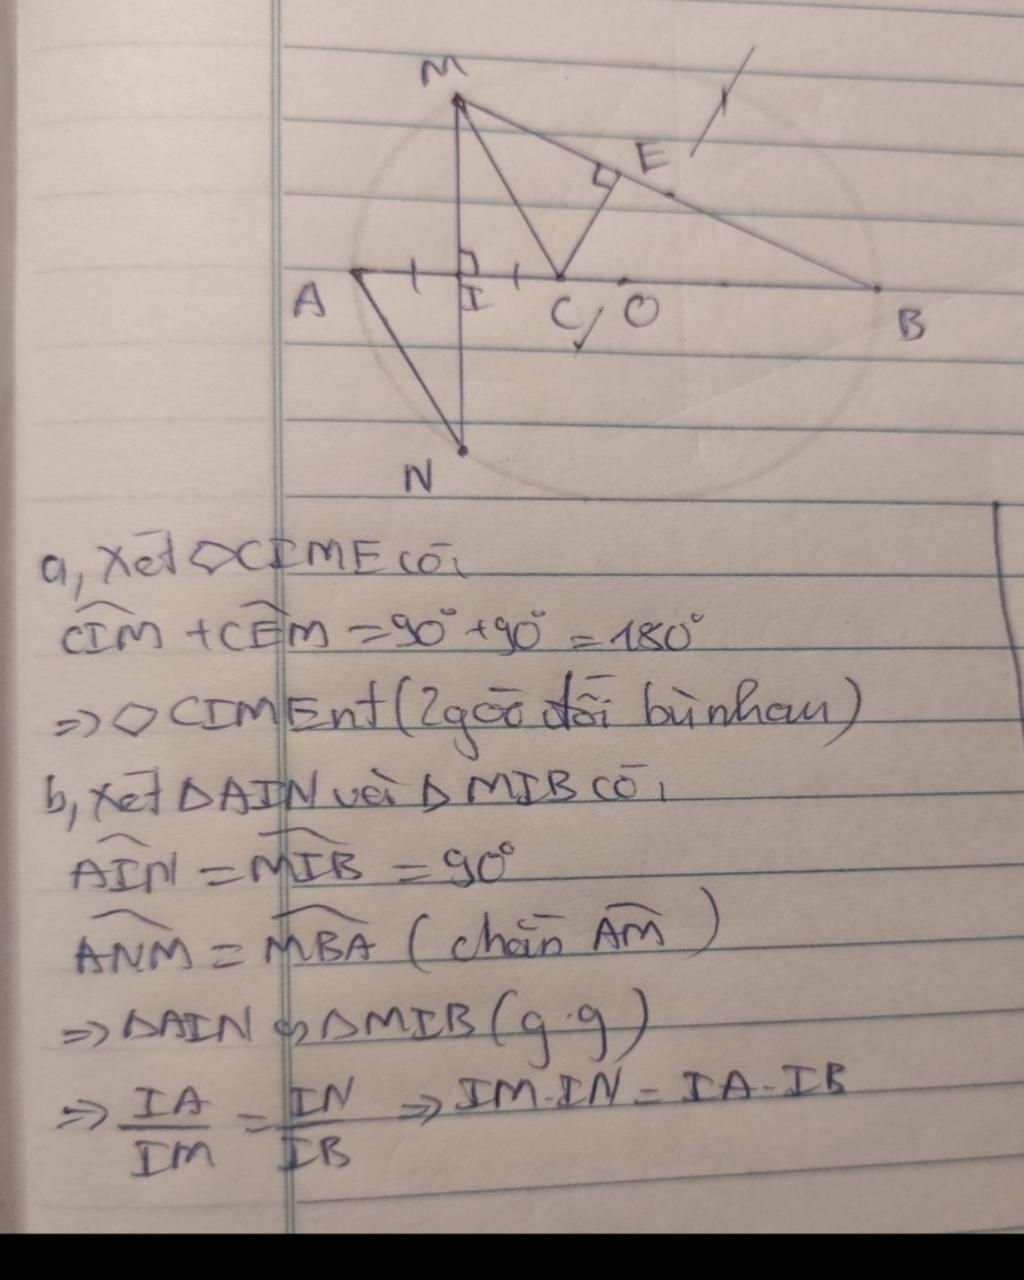 M
E
A
I
C
O
B
N
a, Xét ◇CIME có:
CIM + CEM = 90° + 90° = 180°
=> ◇ CIME nt (2 góc đối bù nhau)
b, xét ΔAIN và Δ MIB có:
AIN = MIB = 90°
ANM = MBA ( chắn AM )
=> ΔAIN ∽ ΔMIB (g.g)
=> IA/IM = IN/IB => IM.IN = IA.IB